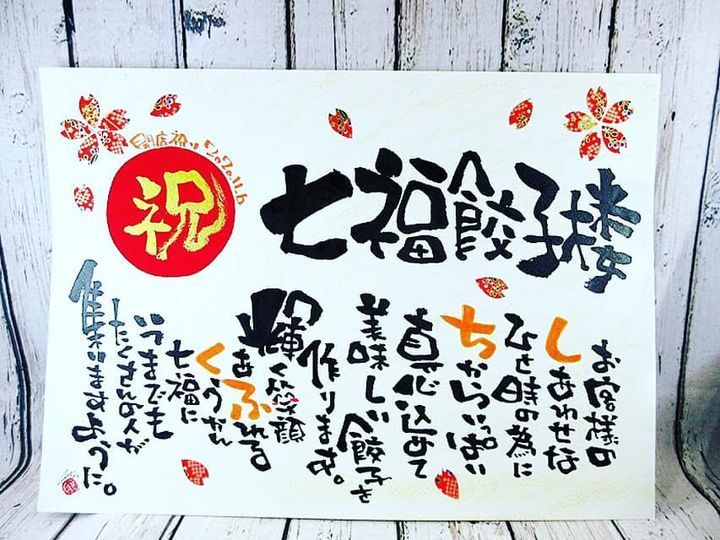 開店祝い 2020.11.6
祝
七福餃子楼
お客様の
しあわせな
ひと時の為に
ちからいっぱい
真心込めて
美味しい餃子を
作ります。
輝く笑顔
あふれる
くうかん
七福に
いつまでも
たくさんの人が
集いますように。